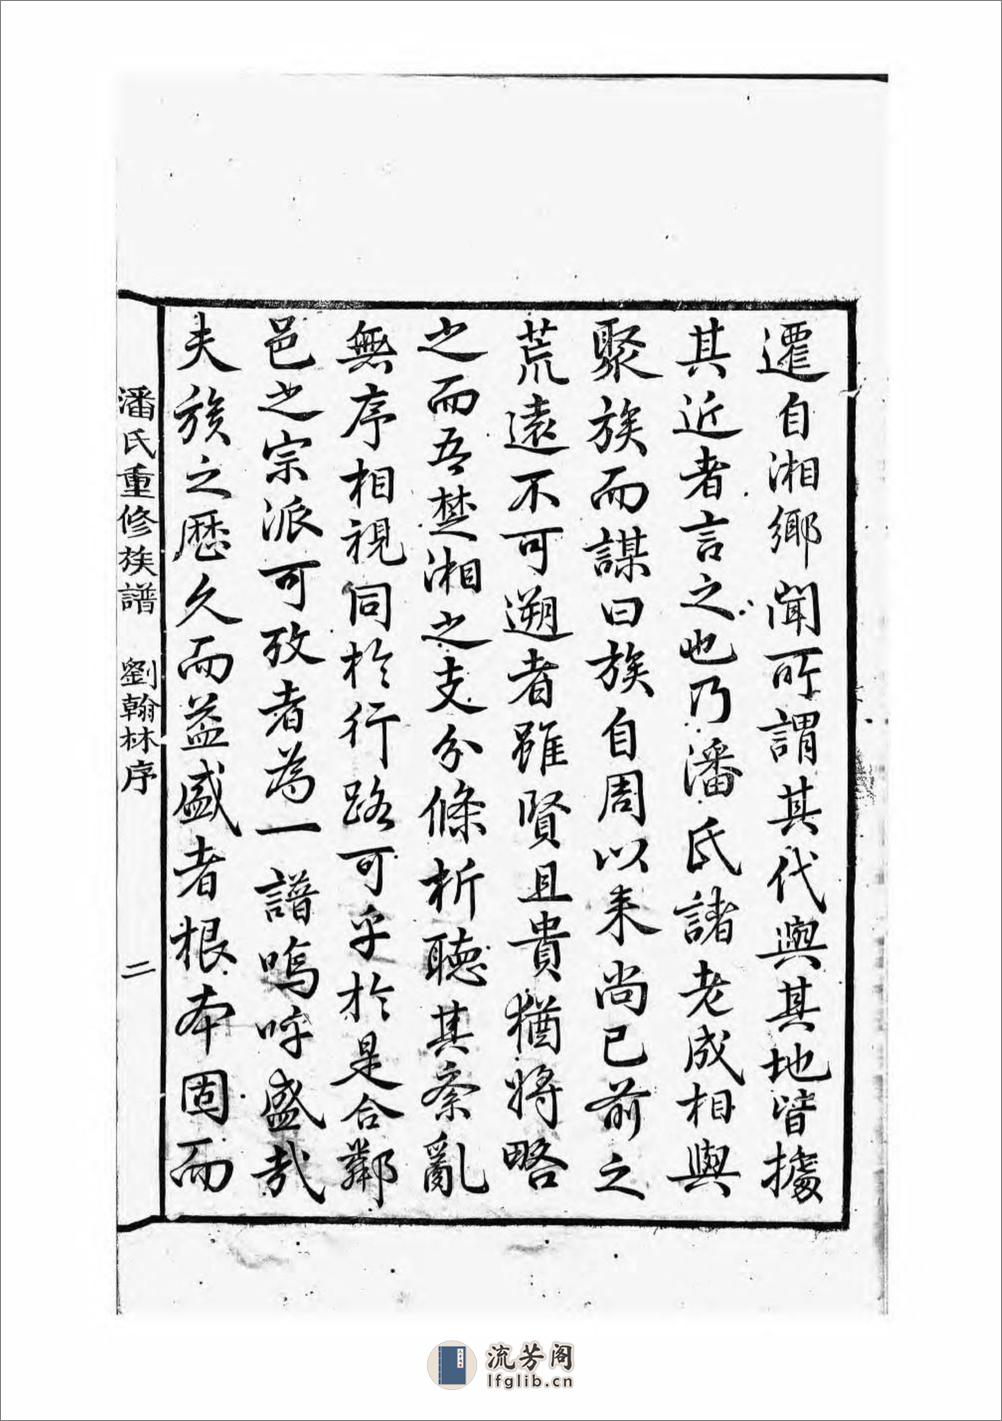 遷自湘鄉聞所謂其代與其地皆據
其近者言之也乃潘氏諸老成相與
聚族而謀曰族自周以来尚已前之
荒遠不可遡者雖賢且貴猶將略
之而吾楚湘之支分條析聽其紊亂
無序相視同於行路可乎於是合鄰
邑之宗派可攷者為一譜嗚呼盛哉
夫族之歷久而益盛者根本固而
潘氏重修族譜 劉翰林序 二
流芳阁
lfglib.cn